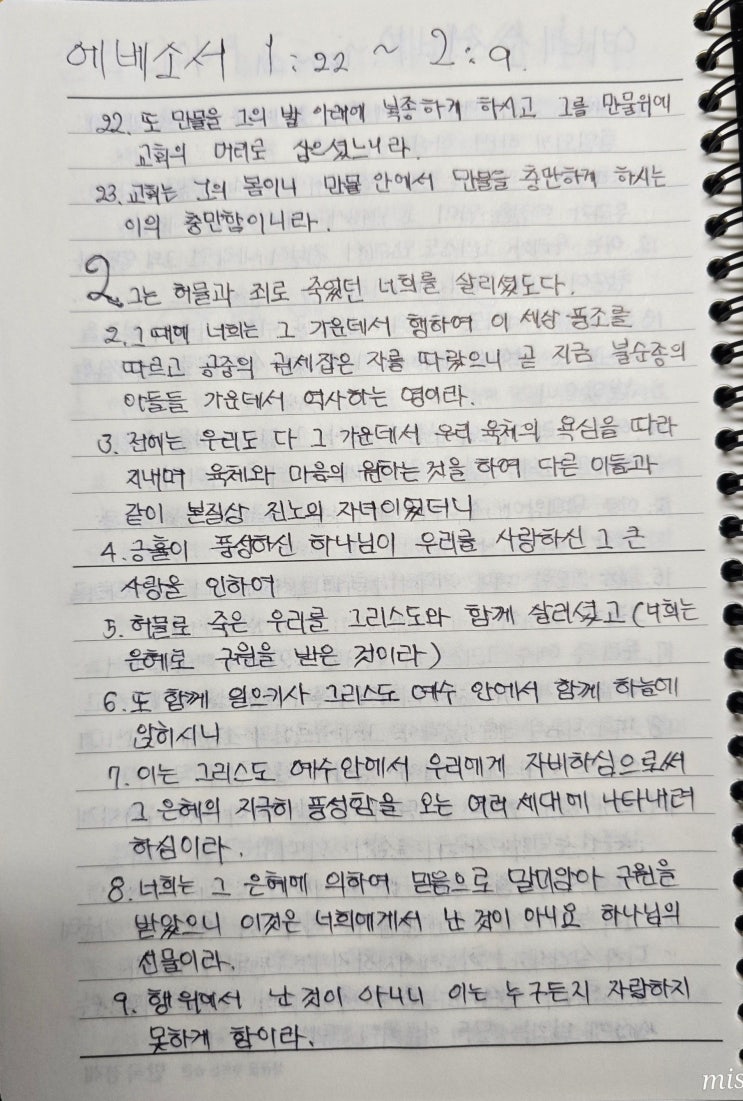 에베소서 1:22 ~ 2:9.
22. 또 만물을 그의 발 아래에 복종하게 하시고 그를 만물위에
교회의 머리로 삼으셨느니라.
23. 교회는 그의 몸이니 만물 안에서 만물을 충만하게 하시는
이의 충만함이니라.
2. 그는 허물과 죄로 죽었던 너희를 살리셨도다.
2. 그 때에 너희는 그 가운데서 행하여 이 세상 풍조를
따르고 공중의 권세잡은 자를 따랐으니 곧 지금 불순종의
아들들 가운데서 역사하는 영이라.
3. 전에는 우리도 다 그 가운데서 우리 육체의 욕심을 따라
지내며 육체와 마음의 원하는 것을 하여 다른 이들과
같이 본질상 진노의 자녀이었더니
4. 긍휼이 풍성하신 하나님이 우리를 사랑하신 그 큰
사랑을 인하여
5. 허물로 죽은 우리를 그리스도와 함께 살리셨고 (너희는
은혜로 구원을 받은 것이라)
6. 또 함께 일으키사 그리스도 예수 안에서 함께 하늘에
앉히시니
7. 이는 그리스도 예수안에서 우리에게 자비하심으로써
그 은혜의 지극히 풍성함을 오는 여러 세대에 나타내려
하심이라.
8. 너희는 그 은혜에 의하여 믿음으로 말미암아 구원을
받았으니 이것은 너희에게서 난 것이 아니요 하나님의
선물이라.
9. 행위에서 난 것이 아니니 이는 누구든지 자랑하지
못하게 함이라.
mis